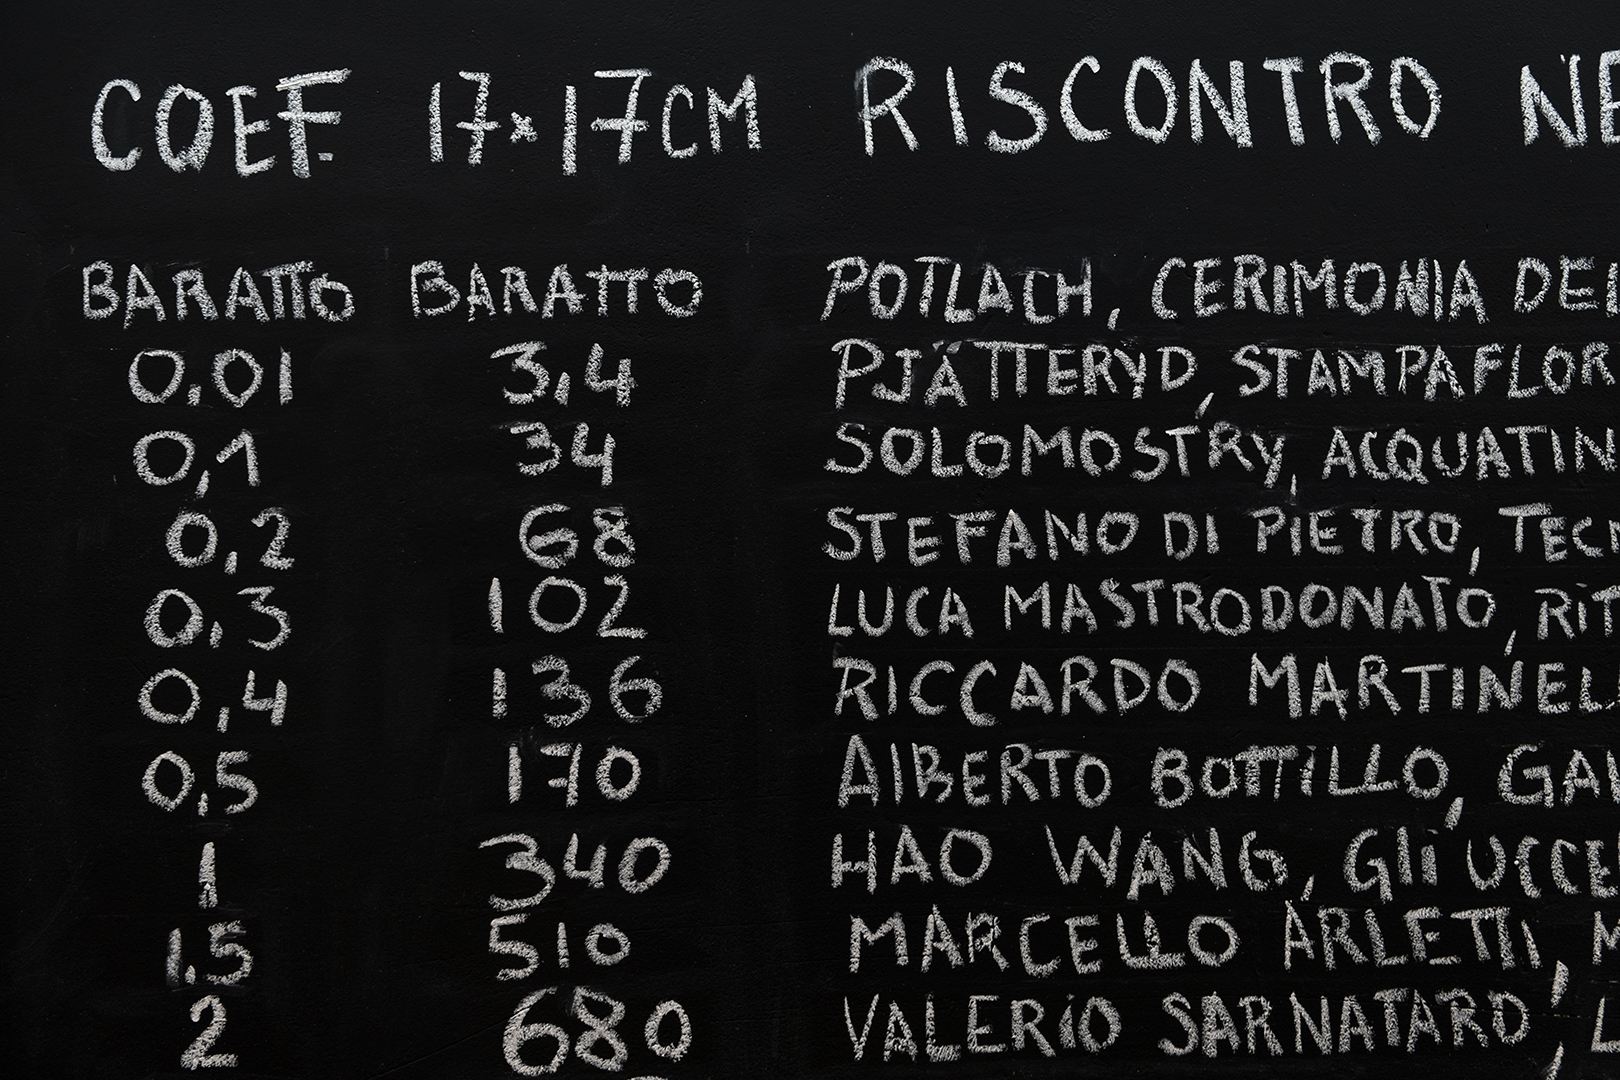 COEF. 17x17CM RISCONTRO NE
BARATTO BARATTO POTLACH, CERIMONIA DEI
0,01 3,4 PJÄTTERYD, STAMPA FLOR
0,1 34 SOLOMOSTRY, ACQUATIN
0,2 68 STEFANO DI PIETRO, TECN
0,3 102 LUCA MASTRODONATO, RIT
0,4 136 RICCARDO MARTINEL
0,5 170 ALBERTO BOTTILLO, GAL
1 340 HAO WANG, GLI UCCE
1,5 510 MARCELLO ARLETTI, M
2 680 VALERIO SARNATARO, L